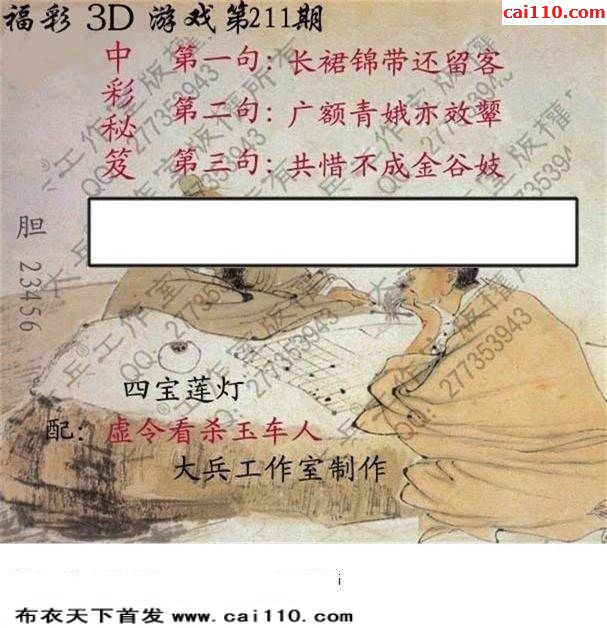 福彩 3D 游戏第211期
cai110.com
中彩秘笈
第一句：长裙锦带还留客
第二句：广额青娥亦效颦
第三句：共惜不成金谷妓
胆 23456
四宝莲灯
配：虚令看杀玉车人
大兵工作室制作
大兵工作室版权所有
QQ：277353943
布衣天下首发 www.cai110.com